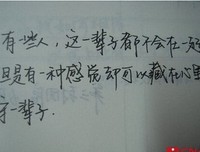 有些人，这一辈子都不会在一起
但是有一种感觉却可以藏在心里
守一辈子.